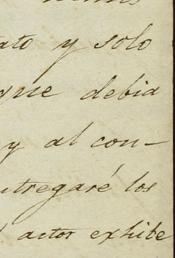 ato y solo
que debia
y al con-
ntregaré los
l actor exhibe